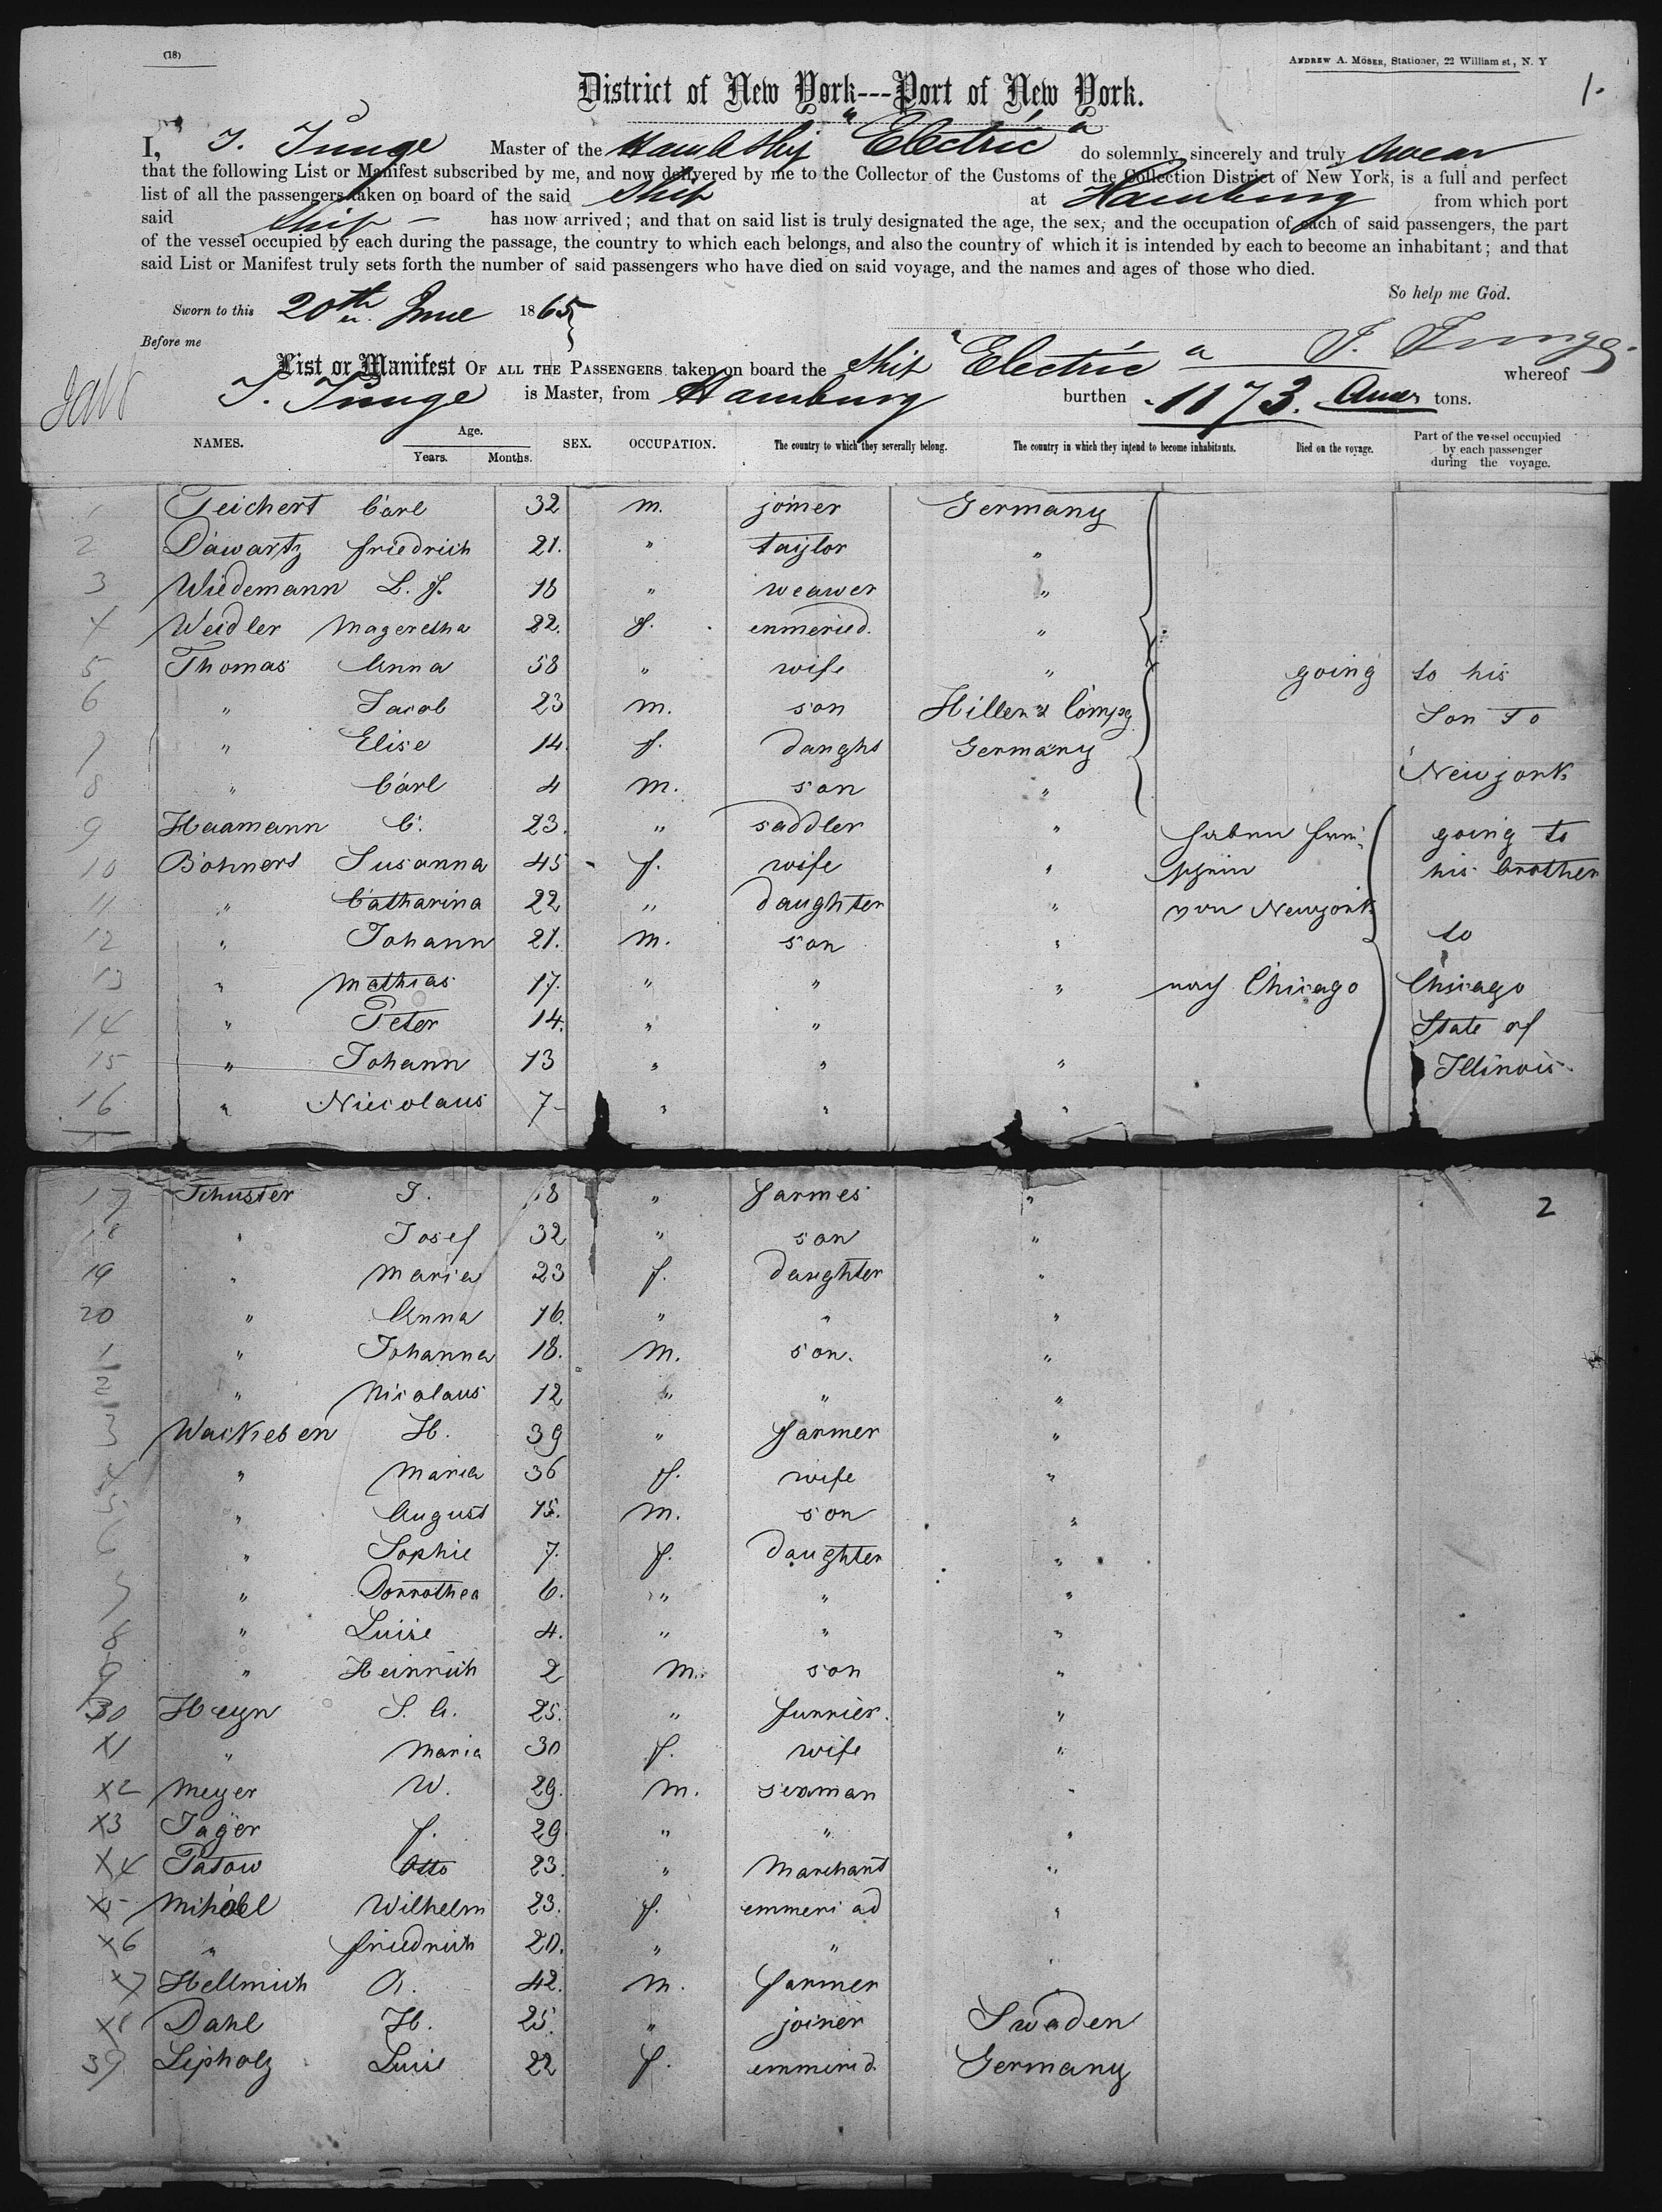 (18)
ANDREW A. MÖSER, Stationer, 22 William st, N. Y
1.
District of New York---Port of New York.
I, J. Junge Master of the Hamb Ship "Electric" a do solemnly, sincerely and truly swear
that the following List or Manifest subscribed by me, and now delivered by me to the Collector of the Customs of the Collection District of New York, is a full and perfect
list of all the passengers taken on board of the said Ship at Hamburg from which port
said Ship has now arrived; and that on said list is truly designated the age, the sex, and the occupation of each of said passengers, the part
of the vessel occupied by each during the passage, the country to which each belongs, and also the country of which it is intended by each to become an inhabitant; and that
said List or Manifest truly sets forth the number of said passengers who have died on said voyage, and the names and ages of those who died.
So help me God.
Sworn to this 20th June 1865
Before me
J. Junge.
List or Manifest OF ALL THE PASSENGERS taken on board the Ship "Electric" a whereof
J. Junge is Master, from Hamburg burthen 1173. Amer tons.
NAMES. Age. Years. Months. SEX. OCCUPATION. The country to which they severally belong. The country in which they intend to become inhabitants. Died on the voyage. Part of the vessel occupied by each passenger during the voyage.
Teichert Carl 32 m. joiner Germany
2 Dawartz friedrich 21. " taylor "
3 Wiedemann L. f. 18 " weawer "
4 Weidler Mageretha 22. f. enmeried. "
5 Thomas Anna 58 " wife " going to his
6 " Jacob 23 m. son Hiller & Compg Son to
7 " Elise 14. f. daught Germany Newjork
8 " Carl 4 m. son "
9 Haamann C. 23. " saddler " going to
10 Bohnert Susanna 45 f. wife " his brother
11 " Catharina 22 " daughter " von Newyork
12 " Johann 21. m. son " to
13 " Mathias 17. " " " nach Chicago Chicago
14 " Peter 14. " " State of
15 " Johann 13 " " " Illinois
16 " Niecolaus 7 " " "
17 Schuster J. 8 " farmes " 2
18 " Josef 32 " son "
19 " Maria 23 f. daughter "
20 " Anna 16. " " "
1 " Johanna 18. m. son. "
2 " Nicolaus 12 " " "
3 Wackieben H. 39 " farmer "
4 " Maria 36 f. wife "
5 " August 15. m. son "
6 " Sophie 7. f. daughter "
7 " Dorrothea 6. " " "
8 " Luise 4. " " "
9 " Heinrich 2 m. son "
30 Heyn S. A. 25. " furrier. "
X1 " Maria 30 f. wife "
X2 Meyer W. 29. m. seaman "
X3 Jager f. 29 " " "
X4 Patow Otto 23. " Marchant "
X5 Wilhelm 23. f. emmeri ad "
X6 " friedrich 20. " "
X7 Hellmich A. 42. m. farmer
X8 Dahl H. 25. " joiner Swaden
39 Lipholz Luise 22 f. emmerid. Germany